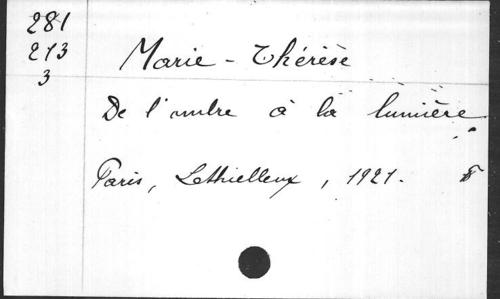 281
273
3
Marie-Thérèse
De l'ombre à la lumière
Paris, Lethielleux, 1921.